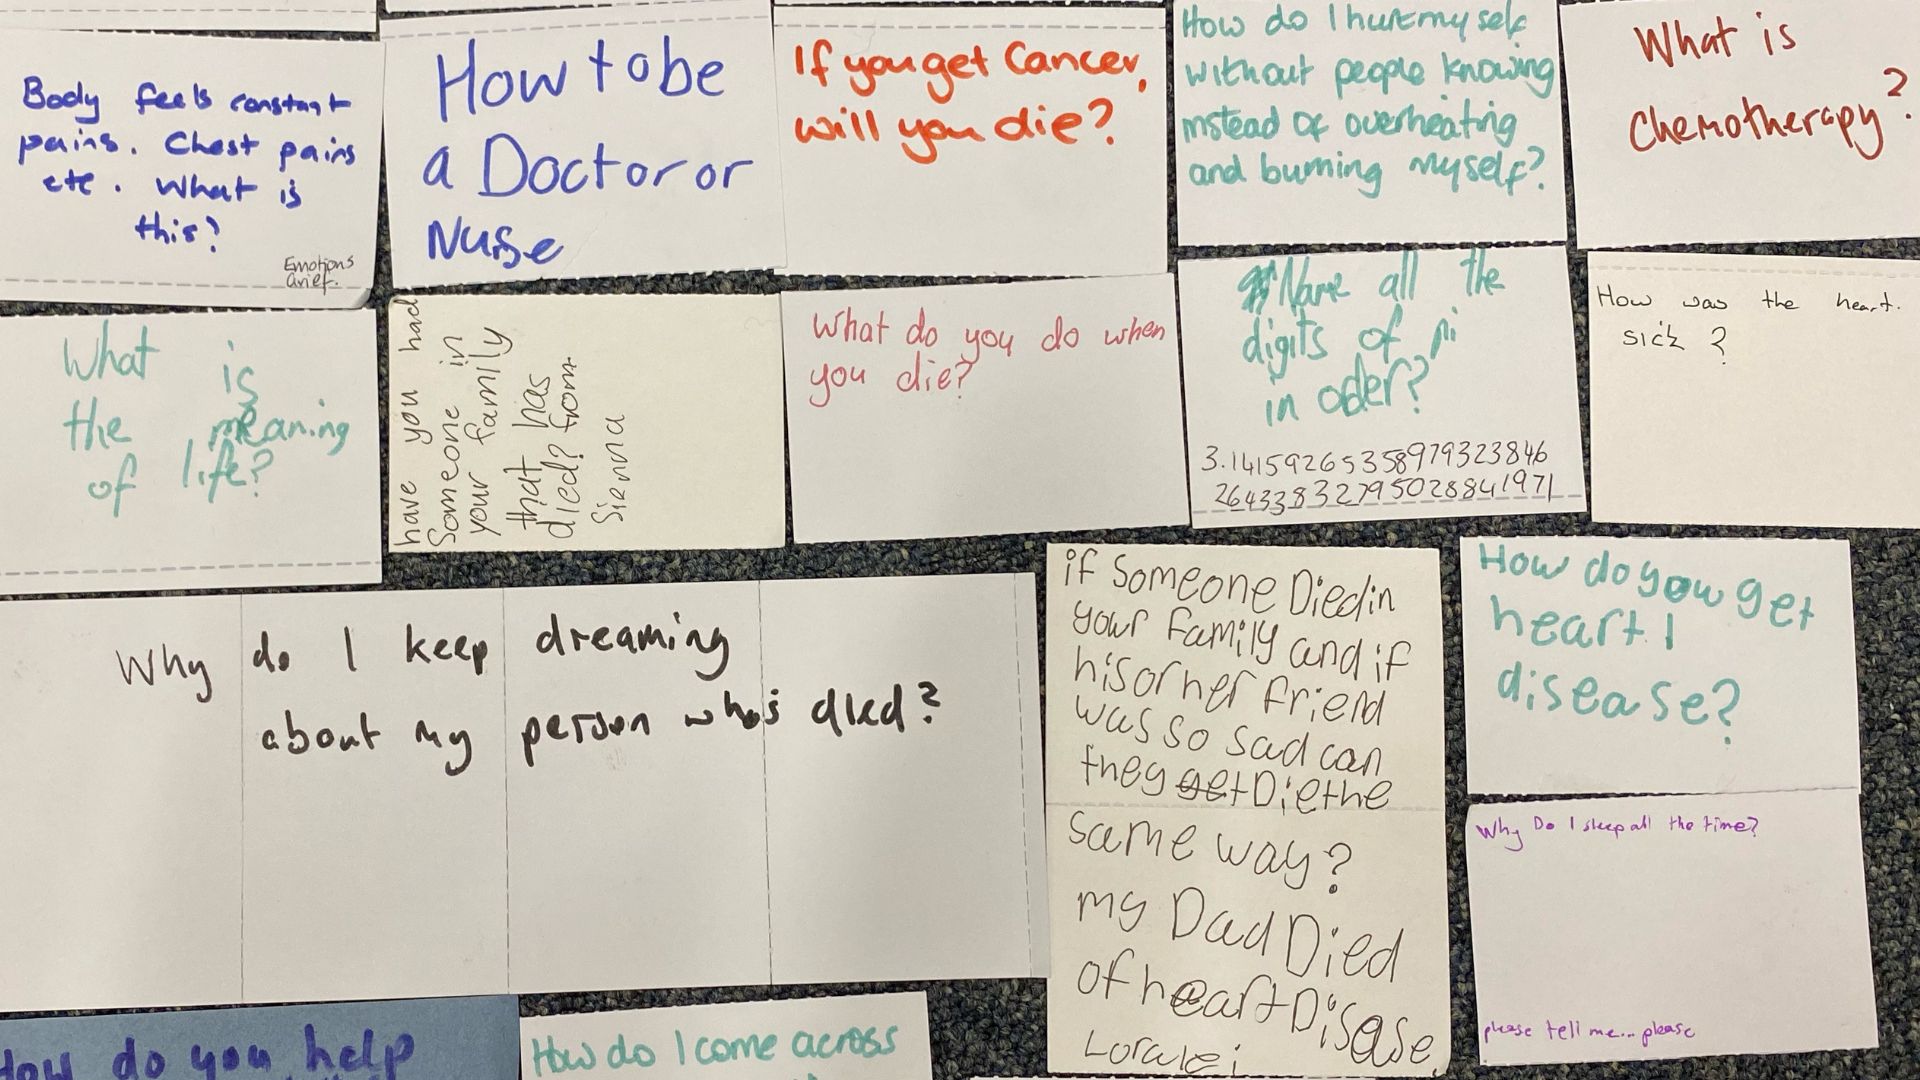 Body feels constant
pains. Chest pains
etc. What is
this?
Emotions
Grief.
How to be
a Doctor or
Nurse
If you get Cancer,
will you die?
How do I hurt my self
without people knowing
instead of overheating
and burning myself?
What is
Chemotherapy?
What is
the meaning
of life?
have you had
Someone in
your family
that has
died? from
Sienna
What do you do when
you die?
Name all the
digits of pi
in oder?
3.14159265358979323846
26433832795028841971
How was the heart.
sick ?
Why do I keep dreaming
about my person who's died?
if Someone Died in
your family and if
his or her friend
was so sad can
they get Die the
same way?
my Dad Died
of heart Disease.
Loralei
How do you get
heart
disease?
Why Do I sleep all the time?
please tell me... please
How do you help
How do I come across